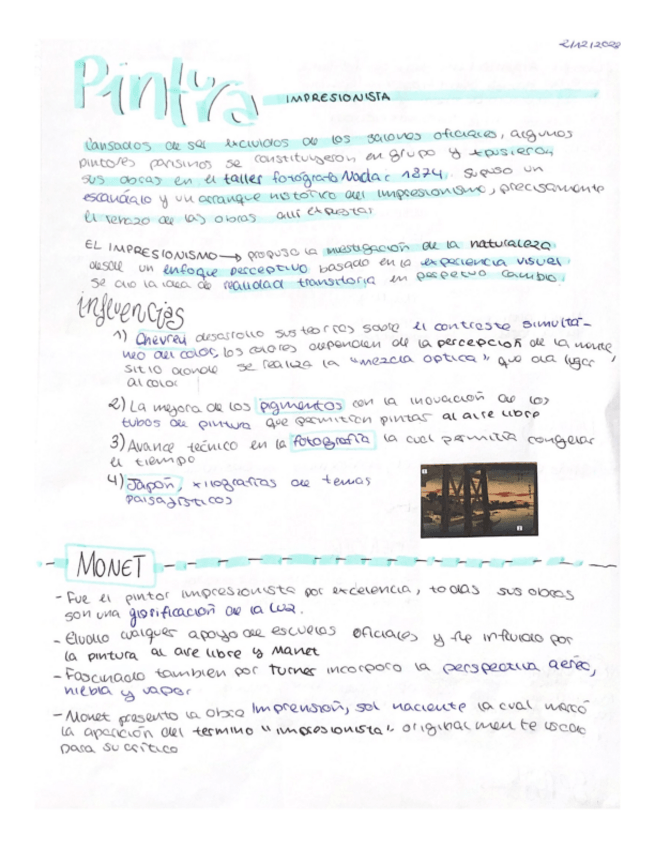 2/12/2022
Pintura IMPRESIONISTA
Cansados de ser excluidos de los salones oficiales, algunos
pintores parisinos se constituyeron en grupo y expusieron
sus obras en el taller fotógrafo Nadar 1874. supuso un
escandalo y un arranque histórico del impresionismo, precisamente
el rechazo de las obras allí expuestas
EL IMPRESIONISMO → propuso la investigación de la naturaleza
desde un enfoque perceptivo basado en la experiencia visual.
se dio la idea de realidad transitoria en perpetuo cambio.
influencias
1) Chevreul desarrollo sus teorias sobre el contraste simultá-
neo del color, los colores dependen de la percepción de la mente,
sitio donde se realiza la "mezcla optica" que da lugar
al color
2) La mejora de los pigmentos con la inovación de los
tubos de pintura que permitían pintar al aire libre
3) Avance técnico en la fotografía la cual permitía congelar
el tiempo
4) Japón, xilografías de temas
paisagísticos
MONET
- Fue el pintor impresionista por excelencia, todas sus obras
son una glorificación de la luz.
- Eludio cualquier apoyo de escuelas oficiales y fue influido por
la pintura al aire libre y Manet
- Fascinado tambien por Turner incorporo la perspectiva aerea,
niebla y vapor
- Monet presento la obra Imprensión, sol naciente la cual marcó
la aparición del termino "impresionista", originalmente usado
para su crítico